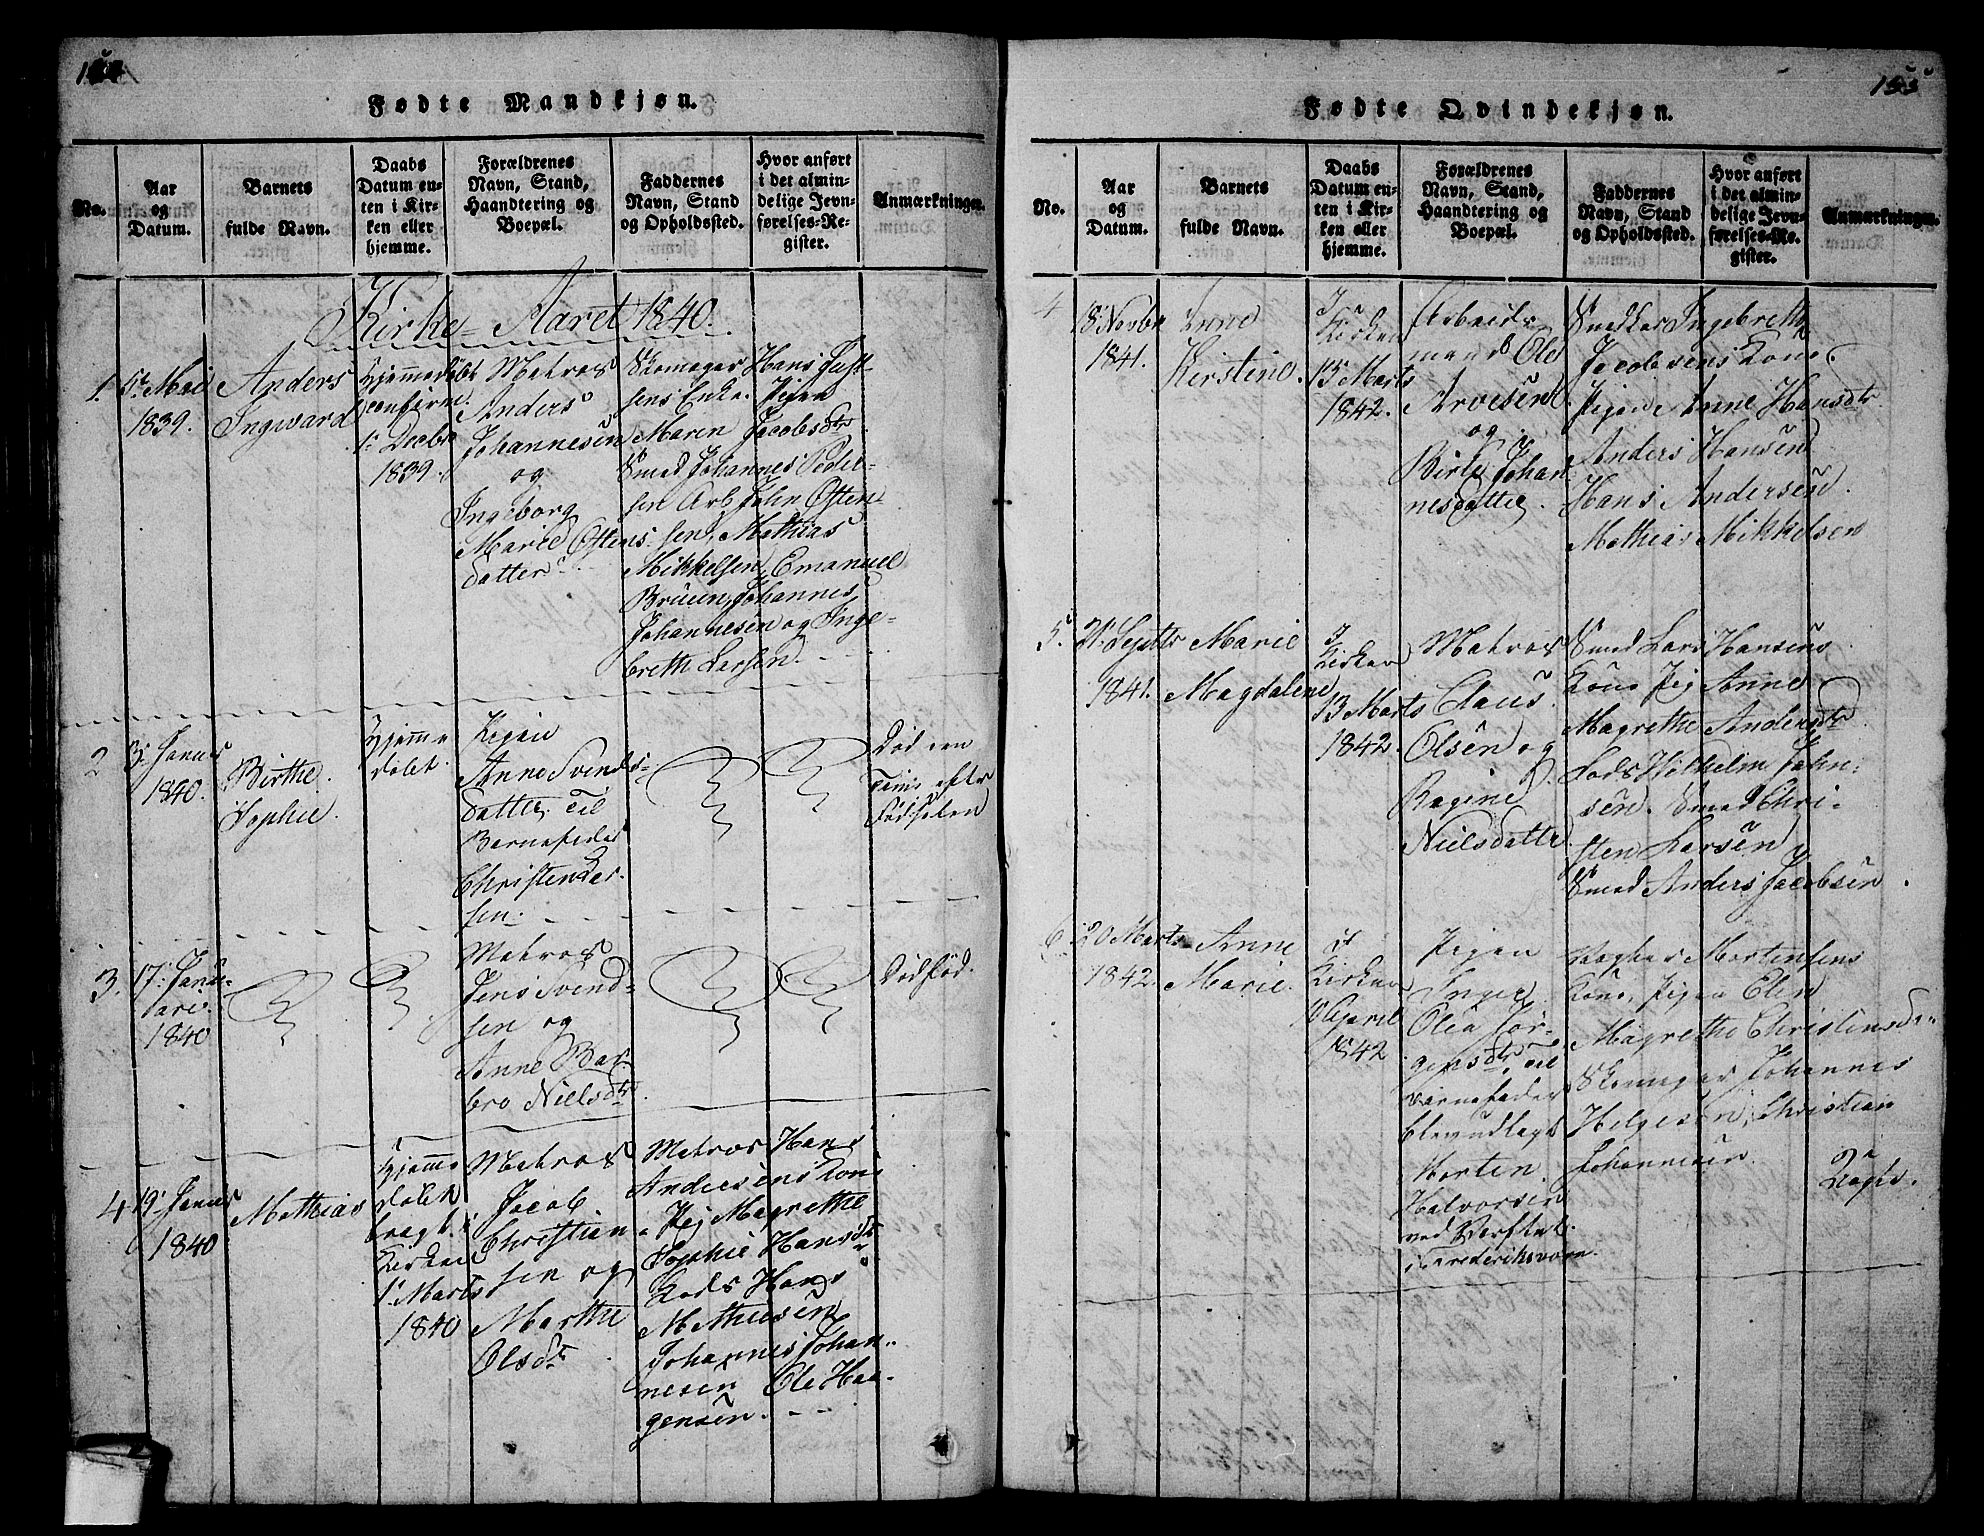 Fødte Mandkjøn.
No.
Aar
og
Datum.
Barnets
fulde Navn.
Daabs
Datum en-
ten i Kir-
ken eller
hjemme.
Forældrenes
Navn, Stand,
Haandtering og
Boepæl.
Faddernes
Navn, Stand
og Opholdssted.
Hvor anført
i det almin-
delige Jevn-
førelses-Re-
gister.
Anmærkninger.
Kirke-Aaret 1840.
1.
5te Mai
1839.
Anders
Ingward
Hjemmedøbt
confirm.
1. Decbr
1839.
Matros
Anders
Johannesen
og
Ingeborg
Marie Ostens
datter
Skomager Hans Just-
sens Enke. Pigen
Maren Jacobsdtr
Smed Johannes Peder-
sen Arb. John Osten-
sen, Mathias
Mikkelsen, Emanuel
Bruun, Johannes
Johannesen og Inge-
breth Larsen.
2
3. Januar
1840.
Birthe
Sophie.
Hjemme
døbt.
Pigen
Anne Svends-
datter. Til
Barnefader
Christen Lar-
sen.
Død een
Time efter
Fødselen
3.
17. Janu-
ari
1840
Matros
Jens Svend-
sen og
Anne Bar-
bro Nielsdtr.
Dødfød.
4
19. Januar
1840
Mathias
Hjemme
døbt
bragt i
Kirken
1. Marts
1840
Matros
Jacob
Christian-
sen og
Marthe
Olsdtr
Matros Hans
Andersens Kone
Pig Magrethe
Sophie Hansdtr
Lods Hans
Mathiesen
Johannes Johan-
nesen Ole Haa-
gensen.
155
Fødte Qvindekjøn.
No.
Aar
og
Datum.
Barnets
fulde Navn.
Daabs
Datum en-
ten i Kir-
ken eller
hjemme.
Forældrenes
Navn, Stand,
Haandtering og
Boepæl.
Faddernes
Navn, Stand
og Opholdssted.
Hvor anført
i det almin-
delige Jevn-
førelses-Re-
gister.
Anmærkninger.
4
18 Novbr
1841.
Anne
Kirstine.
I
Kirken
15 Marts
1842.
Arbeids-
mand Ole
Arvesen
og
Birte Johan-
nesdatter.
Snedker Ingebreth
Jacobsens Kone.
Pigen Anne Hansdtr
Anders Hansen
Hans Andersen.
Mathias Mikkelsen
5.
21. Septbr
1841.
Marie
Magdalene
I
Kirken
13 Marts
1842.
Matros
Claus
Olsen og
Ragine
Nielsdatter
Smed Lars Hansens
Kone Pig Anne
Magrethe Andersdtr
Lods Wilhelm John-
sen. Smed Chri-
sten Larsen
Smed Anders Jacobsen.
6
20 Marts
1842.
Anne
Marie.
I
Kirken
April
1842
Pigen
Inger
Olea Jør-
gensdtr, Til
Barnefader
blev udlagt
Morten
Halvorsen
ved Værftet
i Frederiksværn.
Mortensens
Kone, Pigen Elen
Magrethe Christensd.
Skomager Johannes
Helgesen, Christian
Johannesen